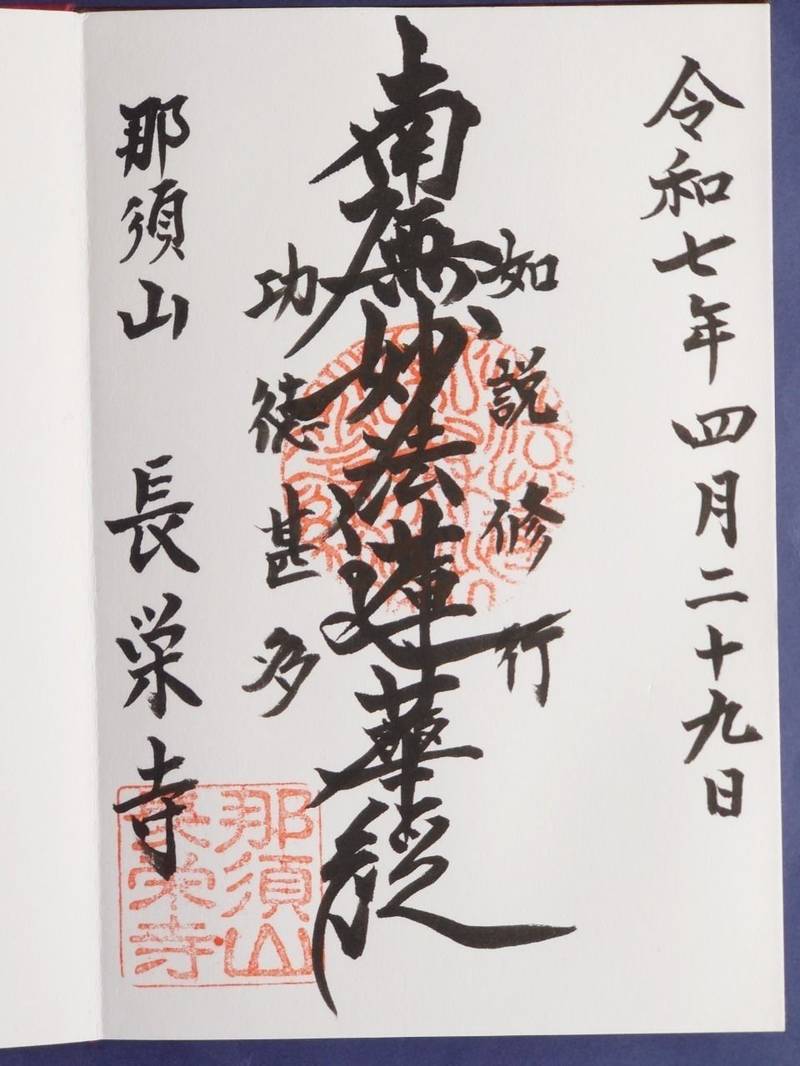 令和七年四月二十九日
如説修行
南無妙法蓮華経
功徳甚多
那須山 長栄寺
那須山
長栄寺